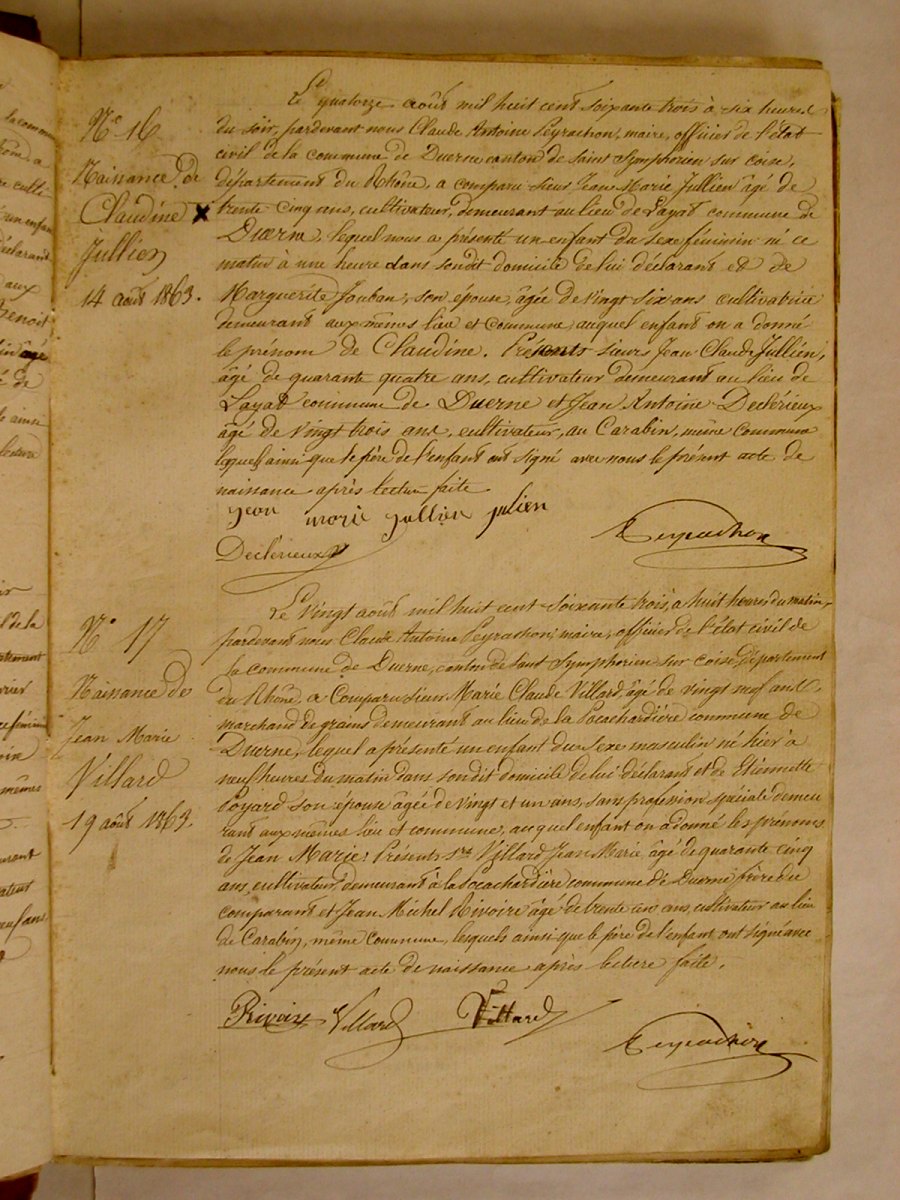 N° 16
Naissance de
Claudine
Jullien
14 août 1863.
Le quatorze août mil huit cent soixante trois à six heures
du soir, pardevant nous Claude Antoine Peyrachon, maire, officier de l'état
civil de la commune de Duerne canton de Saint Symphorien sur Coise,
département du Rhône, a comparu sieur Jean Marie Jullien âgé de
trente cinq ans, cultivateur, demeurant au lieu de Layat commune de
Duerne, lequel nous a présenté un enfant du sexe féminin né ce
matin à une heure dans son dit domicile de lui déclarant et de
Marguerite Jouban, son épouse, âgée de vingt six ans cultivatrice
demeurant aux mêmes lieu et commune, auquel enfant on a donné
le prénom de Claudine. Présents sieurs Jean Claude Jullien,
âgé de quarante quatre ans, cultivateur demeurant au lieu de
Layat commune de Duerne et Jean Antoine Declérieux
âgé de vingt trois ans, cultivateur, au Carabin, même commune
lequels ainsi que le père de l'enfant ont signé avec nous le présent acte de
naissance après lecture faite
jean marie jullien julien
Declérieux
Peyrachon
N° 17
Naissance de
Jean Marie
Villard
19 août 1863.
Le vingt août mil huit cent soixante trois, à huit heures du matin,
pardevant nous Claude Antoine Peyrachon, maire, officier de l'état civil de
la commune de Duerne, canton de Saint Symphorien sur Coise, département
du Rhône, a comparu sieur Marie Claude Villard, âgé de vingt neuf ans,
marchand de grains demeurant au lieu de la Pocachardière commune de
Duerne, lequel a présenté un enfant du sexe masculin né hier à
neuf heures du matin dans son dit domicile de lui déclarant et de Etiennette
Poyard son épouse âgée de vingt et un ans, sans profession spéciale demeu
rant aux mêmes lieu et commune, auquel enfant on a donné les prénoms
de Jean Marie, Présents srs Villard Jean Marie, âgé de quarante cinq
ans, cultivateur, demeurant à la Pocachardière commune de Duerne frère du
comparant et Jean Michel Rivoire âgé de trente un ans, cultivateur au lieu
de Carabin, même commune, lesquels ainsi que le père de l'enfant ont signé avec
nous le présent acte de naissance après lecture faite.
Rivoire Villard Villard
Peyrachon